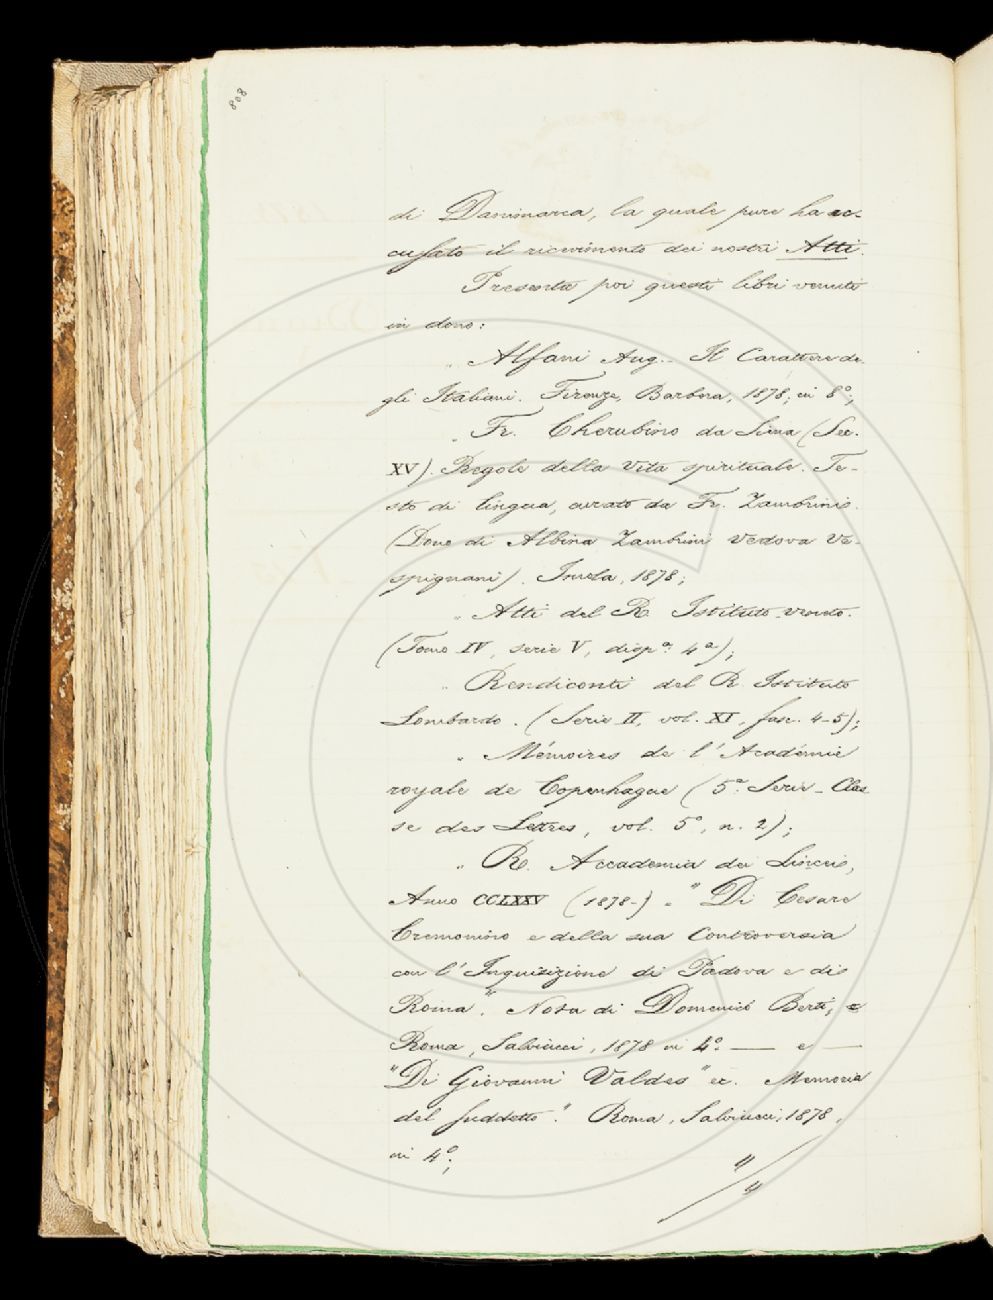 808
di Danimarca, la quale pure ha ac-
cusato il ricevimento dei nostri Atti.
Presenta poi questi libri venuti
in dono:
„ Alfani Aug. - Il Carattere de-
gli Italiani. Firenze, Barbera, 1878; in 8°;
„ Fr. Cherubino da Siena (Sec.
XV). Regole della Vita spirituale. Te-
sto di lingua, curato da Fr. Zambrini.
(Dono di Albina Zambrini Vedova Ve-
spignani). Imola, 1878;
„ Atti del R. Istituto veneto.
(Tomo IV, serie V, disp.a 4a);
„ Rendiconti del R. Istituto
Lombardo. (Serie II, vol. XI, fasc. 4-5);
„ Mémoires de l'Académie
royale de Copenhague (5.e Serie - Clas
se des Lettres, vol. 5°, n. 2);
„ R. Accademia dei Lincei,
Anno CCLXXV (1878-) - "Di Cesare
Cremonino e della sua Controversia
con l'Inquisizione di Padova e di
Roma". Nota di Domenico Berti;
Roma, Salviucci, 1878 in 4°. — e —
"Di Giovanni Valdes" ec. Memoria
del suddetto". Roma, Salviucci, 1878,
in 4°;
"/"